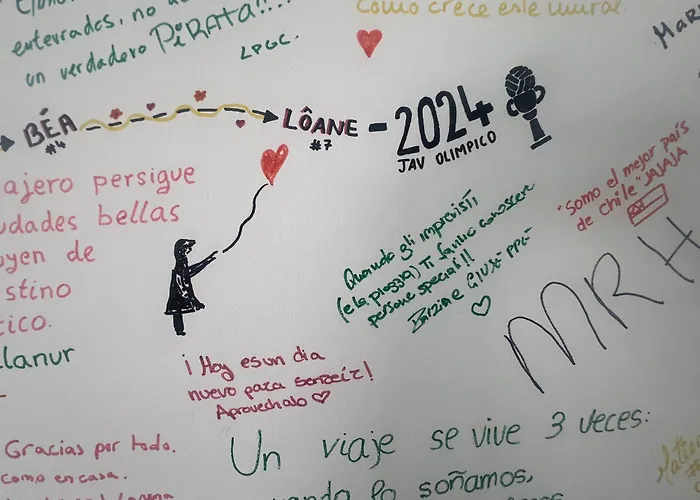 enterrados, no
un verdadero PiRATA!!...
LPGC.
como crece este mural.
BÉA
#4
LÔANE
#7
-2024
JAV OLIMPICO
ajero persigue
udades bellas
uyen de
stino
ico.
llanur
Quando gli imprevisti,
(e la pioggia) Ti fanno conoscere
persone speciali!!
"Somo el mejor país
de Chile" JAJAJA
MRH
¡Hoy es un dia
nuevo para sonreir!
Aprovechalo ♡
Gracias por todo.
como en casa.
Un viaje se vive 3 veces:
uando lo soñamos,